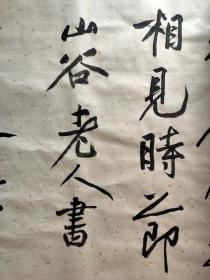 相見時之即
山谷老人書